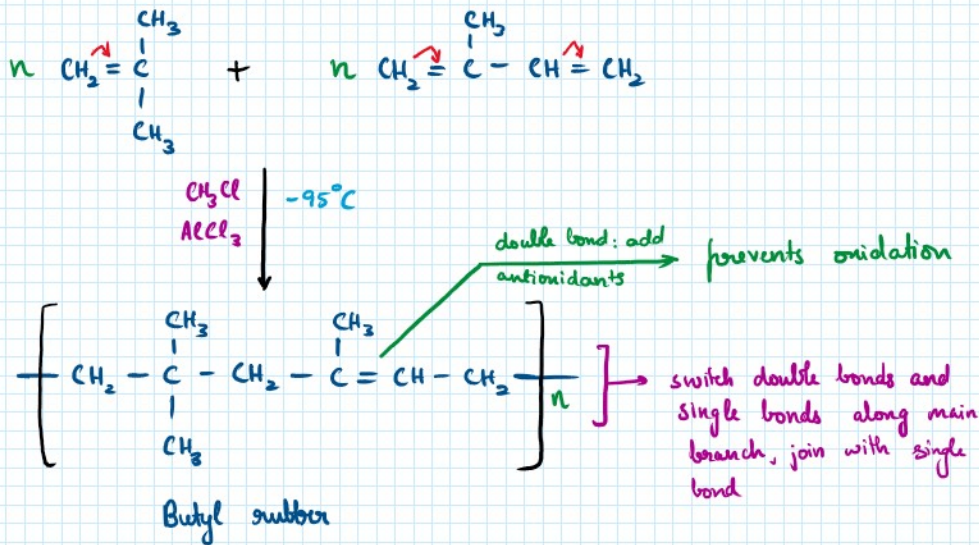 CH3 CH3
n CH2 = C + n CH2 = C - CH = CH2
CH3
CH3Cl -95°C
AlCl3
double bond: add
antioxidants
prevents oxidation
CH3 CH3
CH2 - C - CH2 - C = CH - CH2 n
CH3
switch double bonds and
single bonds along main
branch, join with single
bond
Butyl rubber